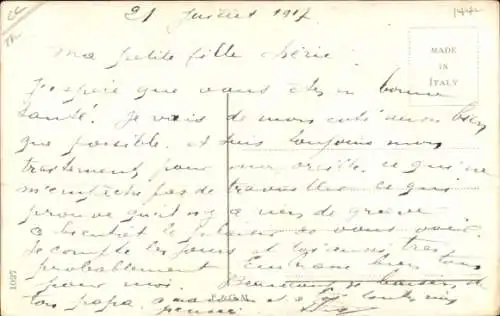 21 Juillet 1917
1442
MADE
IN
ITALY
Ma petite fille chérie
J'espère que vous êtes en bonne
santé. Je vais de mon coté aussi bien
que possible. et suis toujours mon
traitement, pour mon oreille. ce qui ne
m'empêche pas de travailler ce qui
prouve qu'il n'y a rien de grave
a bientôt le plaisir de vous voir.
Je compte les jours et
probablement Embrasse bien
pour moi
Ton papa
1027